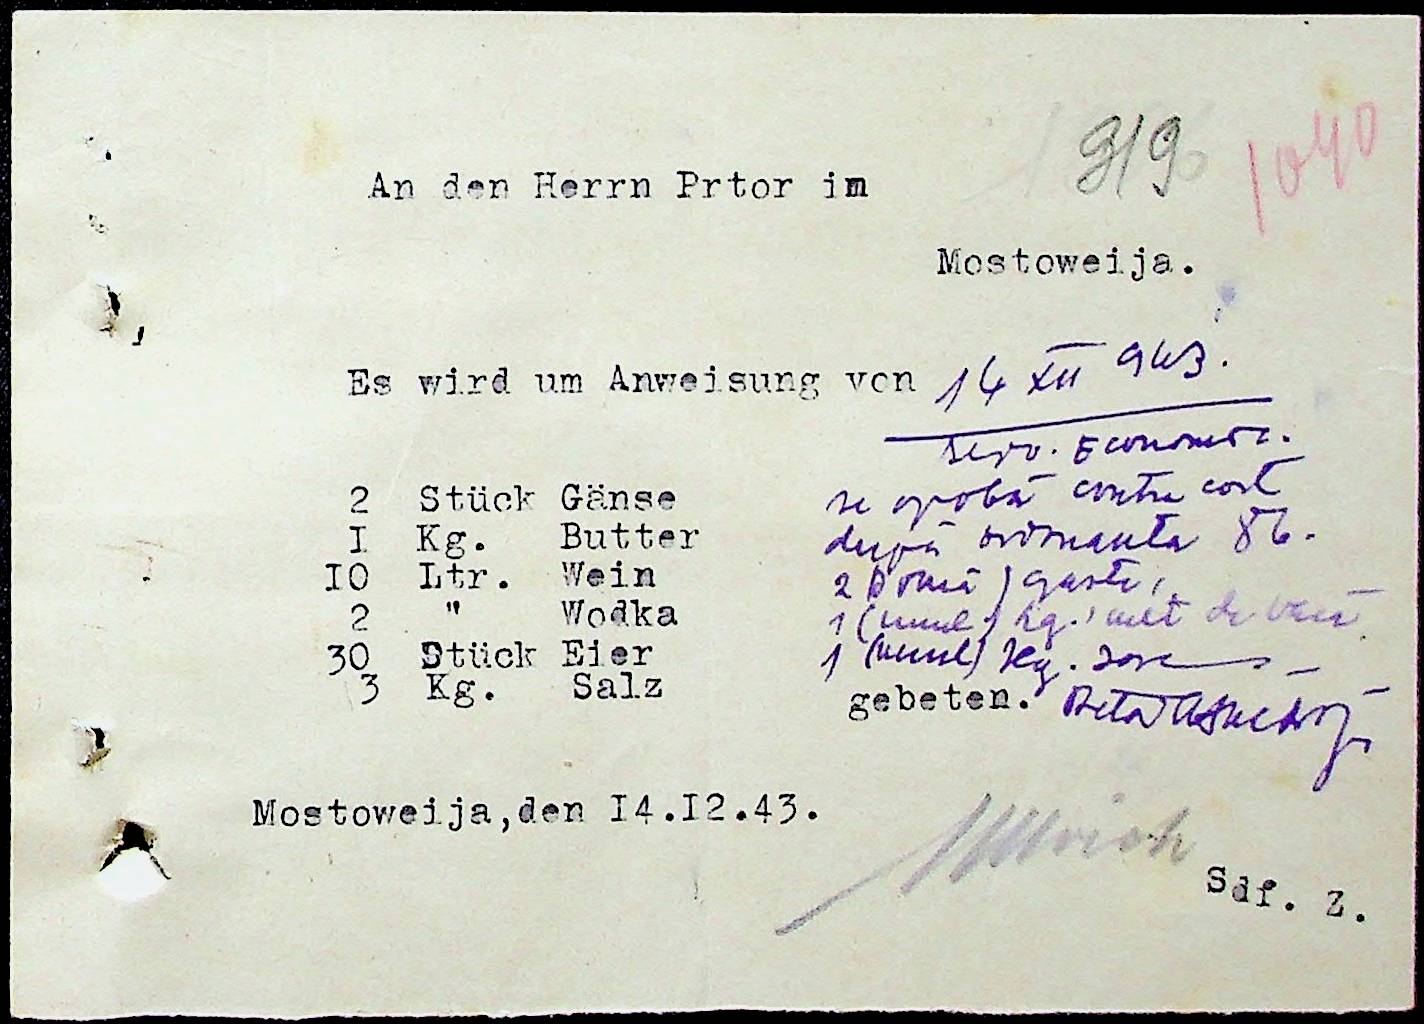 919
1040
An den Herrn Prtor im
Mostoweija.
Es wird um Anweisung von
14 XII 943.
Serv. Economic.
2 Stück Gänse
se aprobă contra cost
1 Kg. Butter
după ordonanta 86.
10 Ltr. Wein
2 (două) gaste,
2 " Wodka
1 (unul) kg. unt de vacă
30 Stück Eier
1 (unul) Kg. sare
3 Kg. Salz
gebeten.
Pretor
Mostoweija,den 14.12.43.
Ullrich
Sdf. Z.